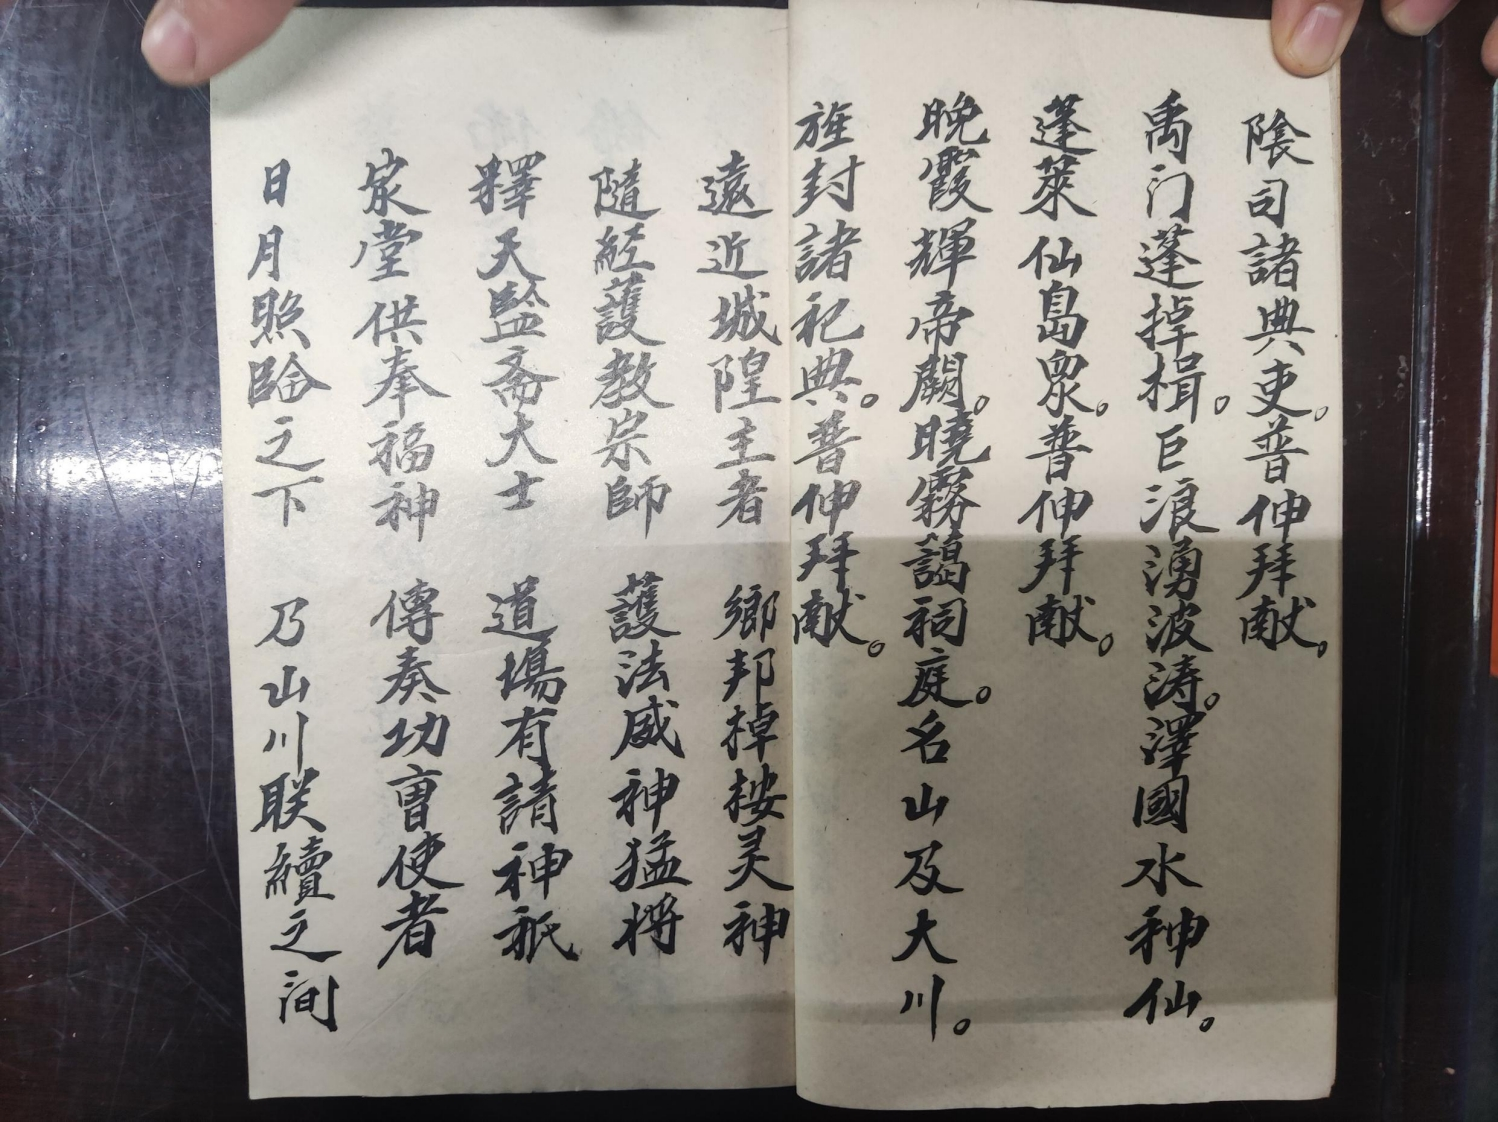 陰司諸典吏。普伸拜献。
禹门蓬掉楫。巨浪湧波涛。澤國水神仙。
蓬萊仙島眾。普伸拜献。
晚霞輝帝闕。曉霧藹祠庭。名山及大川。
旌封諸祀典。普伸拜献。
遠近城隍主者 鄉邦掉桉灵神
隨經護教宗師 護法威神猛将
釋天監斋大士 道場有請神祇
家堂供奉福神 傳奏功曹使者
日月照臨之下 乃山川联續之间